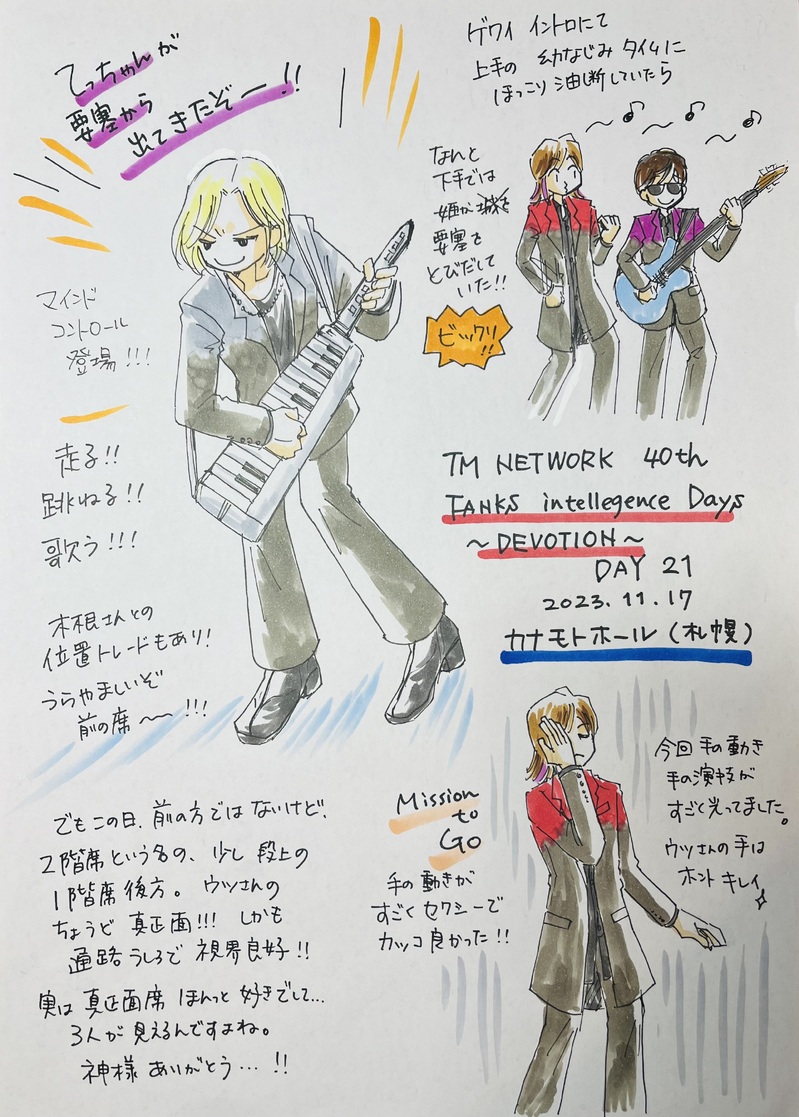 てっちゃんが
要塞から
出てきたぞー!!
ゲワイ イントロにて
上手の 幼なじみ タイムに
ほっこり 油断していたら
なんと
下手では
姫が
要塞を
とびだして
いた!!
ビックリ
!!
マインド
コントロール
登場!!!
走る!!
跳ねる!!
歌う!!!
木根さんとの
位置トレードもあり!
うらやましいぞ
前の席〜!!!
TM NETWORK 40th
TANKS intellegence Days
〜DEVOTION〜
DAY 21
2023.11.17
カナモトホール(札幌)
でもこの日、前の方ではないけど、
2階席という名の、少し段上の
1階席後方。ウツさんの
ちょうど真正面!!! しかも
通路うしろで 視界良好!!
実は真正面席 ほんっと 好きでして…
3人が見えるんですよね。
神様ありがとう…!!
Mission
to
Go
手の動きが
すごくセクシーで
カッコ良かった!!
今回 手の動き
手の演技が
すごく光ってました。
ウツさんの手は
ホント キレイ